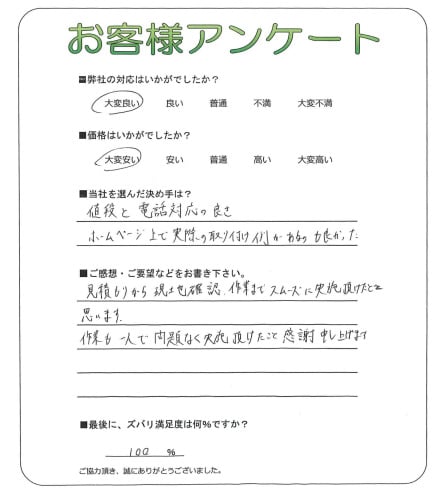 お客様アンケート
■弊社の対応はいかがでしたか？
大変良い 良い 普通 不満 大変不満
■価格はいかがでしたか？
大変安い 安い 普通 高い 大変高い
■当社を選んだ決め手は？
値段と電話対応の良さ
ホームページ上で実際の取り付け例があるのも良かった
■ご感想・ご要望などをお書き下さい。
見積もりから現地確認、作業までスムーズに実施頂けたと
思います。
作業も一人で問題なく実施頂けたこと感謝申し上げます
■最後に、ズバリ満足度は何%ですか？
100 %
ご協力頂き、誠にありがとうございました。